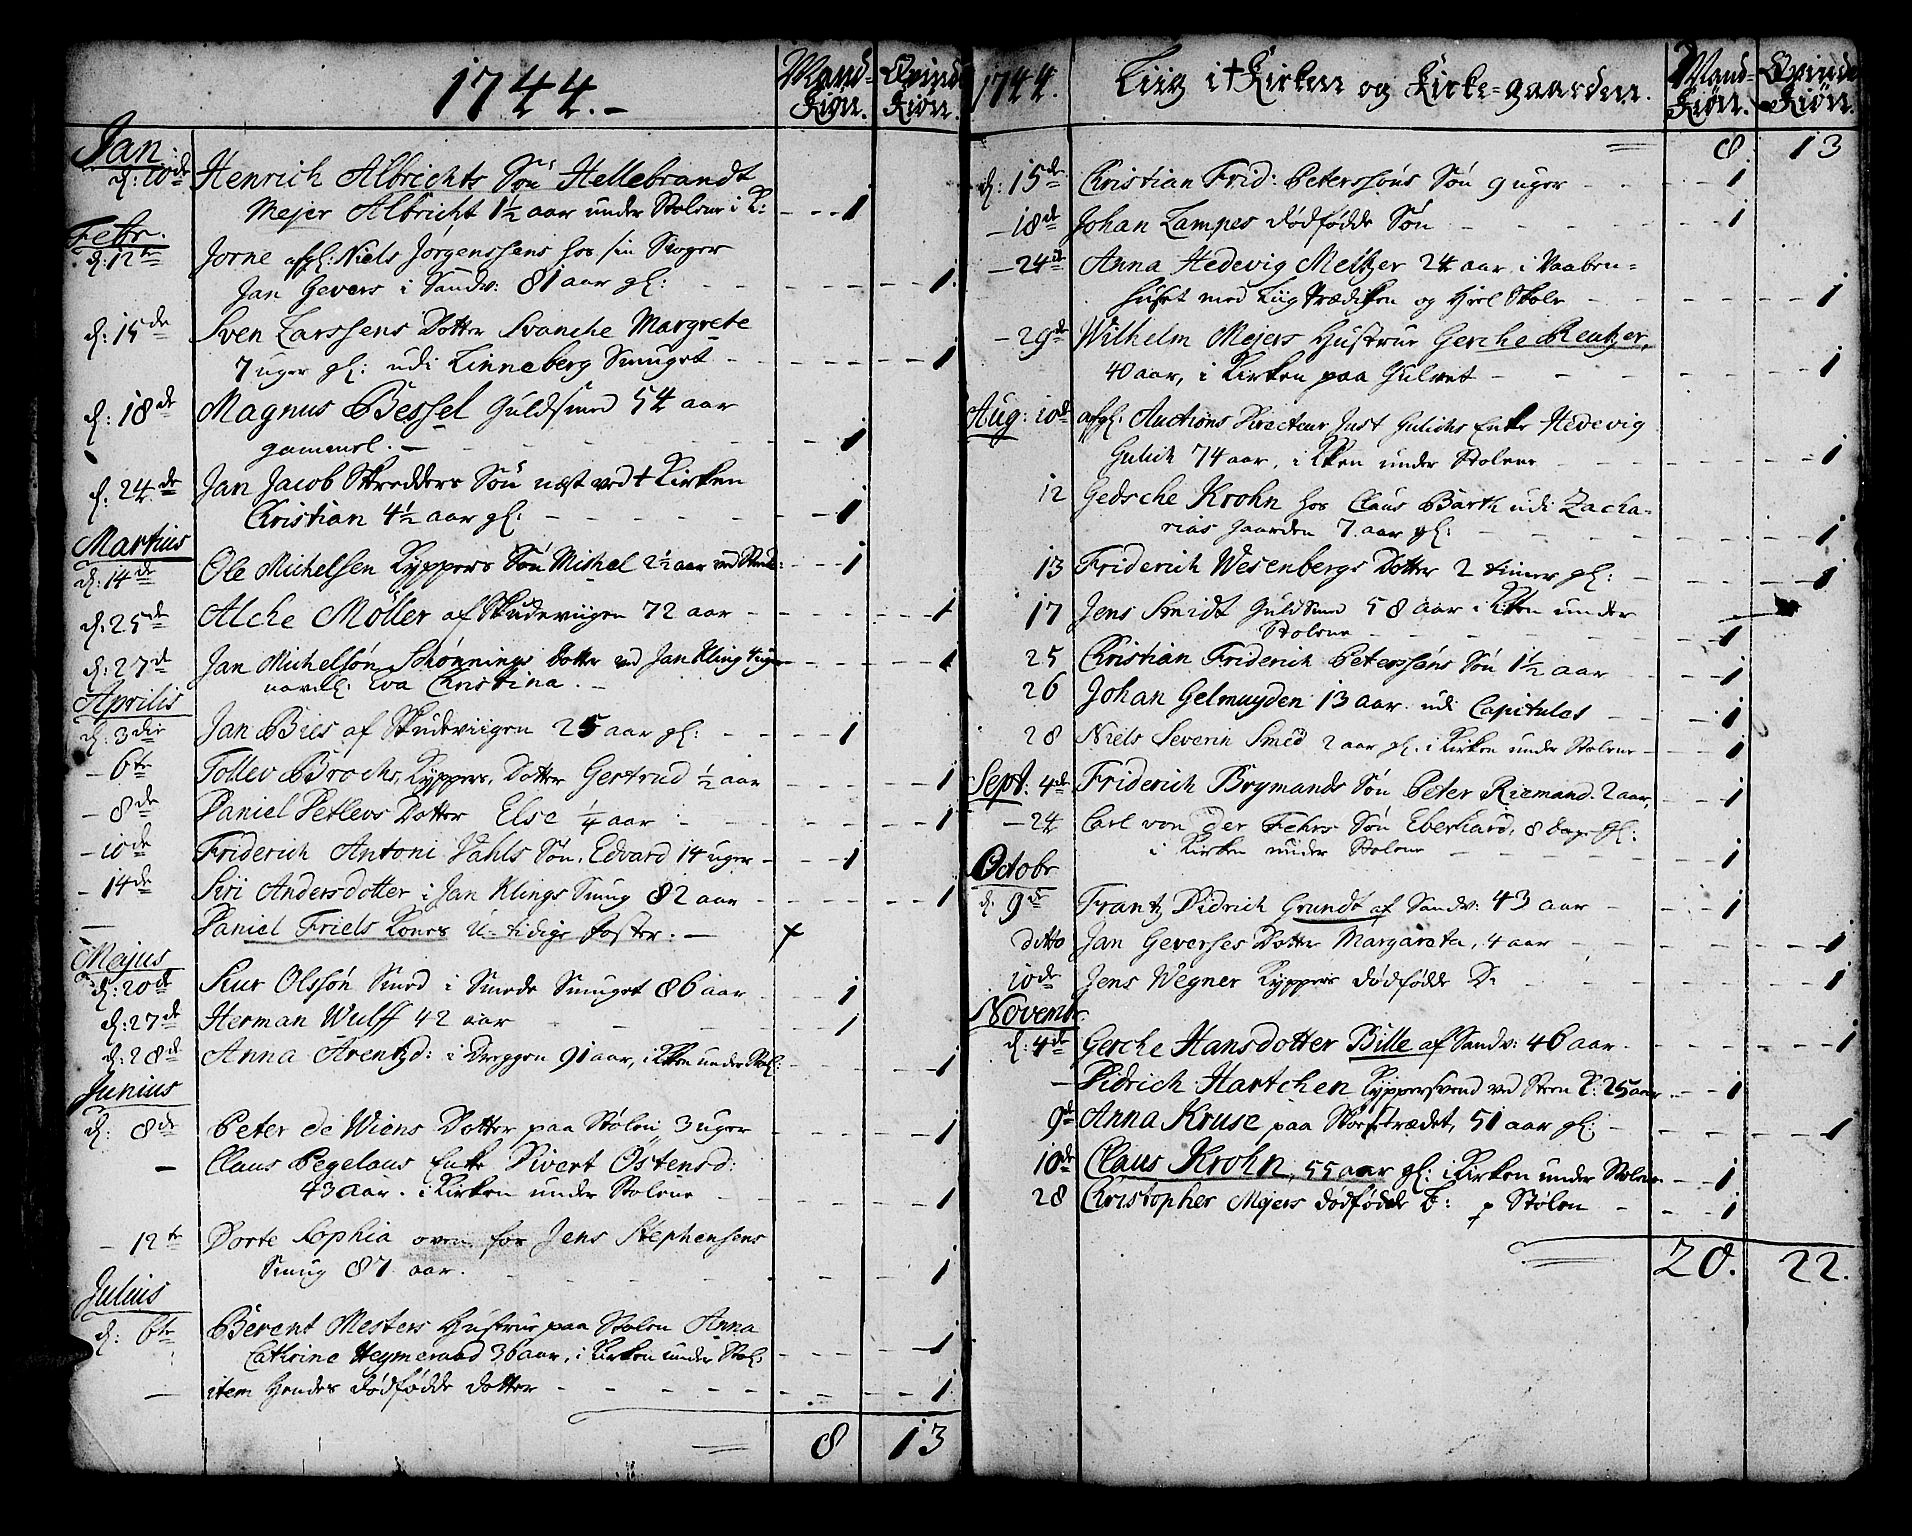 1744.-
Mand- Kiøn. Qvinde Kiøn.
Jan:
d: 10de Henrich Albrichts Søn Hellebrandt
Mejer Albricht 1½ aar under Stolene i K: - - - 1
Febr.
d: 12te Jorne afgl: Niels Jørgenssens hos sin Svoger
Jan Gevers i Sandv: 81 aar gl: - - 1
d: 15de Sven Larssens Dotter Svanche Margrete
7 uger gl: udi Linneberg Smuget - - 1
d: 18de Magnus Bessel Guldsmed 54 aar
gammel. - - - 1
d: 24de Jan Jacob Skredders Søn næst ved + Kirken
Christian 4½ aar gl: - - - 1
Martius
d: 14de Ole Michelsen Kyppers Søn Michel 2½ aar ved - - 1
d: 25de Alche Möller af Skudeviigen 72 aar - - 1
d: 27de Jan Michelsøn Schønnings Dotter ved Jan Kling 4 uger - - 1
navnl: Eva Christina. -
Aprilis
d: 3die Jan Bies af Skudeviigen 25 aar gl: - - 1
- 6te Tollev Brochs, Kyppers, Dotter Gertrud ½ aar - - 1
- 8de Daniel Detlevs Dotter Else ¼ aar - - 1
- 10de Friderich Antoni Vahls Søn, Edvard 14 uger - - 1
- 14de Siri Andersdotter i Jan Klings Smug 82 aar - - 1
- Daniel Friels Kones U-tidige foster. - +
Majus
d: 20de Siur Olssøn Smed i Smede Smuget 86 aar - 1
d: 27de Herman Wulff 42 aar - - 1
d: 28de Anna Arentzd: i Dreggen 91 aar, i Kken under Stol: - - 1
Junius
d: 8de Peter de Wiens Dotter paa Stølen 3 uger - - 1
- Claus Pegelaus Enke Divert Östensd:
43 aar. i Kirken under Stolene - - 1
- 12te Dorte Sophia oven for Jens Stephensens
Smug 87 aar. - - 1
Julius
d: 6te Berent Mesters Hustrue paa Stølen Anna
Cathrine Heymeraad 36 aar, i Kirken under Stol: - - 1
- item Hendes dødfødde dotter - - 1
8 13
1744. Liig i + Kirken og Kirke-gaarden. Mand- Kiøn. Qvinde Kiøn.
8 13
d: 15de Christian Frid: Peterssøns Søn 9 uger - - 1
- 18de Johan Lampes dødfødde Søn - - 1
- 24de Anna Hedevig Meltzer 24 aar i Vaaben-
huset med Liig Prædiken og Heel Skole - - 1
- 29de Wilhelm Mejers Hustrue Gerche Reutzer,
40 aar, i Kirken paa Gulvet - - 1
Aug: 10de afgl: Auctions Directeur Just Gulichs Enke Hedevig
Gulich 74 aar, i Kken under Stolene - - 1
12 Gedsche Krohn hos Claus Barth udi Zacha-
rias gaarden 7 aar gl: - - 1
13 Friderich Wesenbergs Dotter 2 timer gl: - - 1
17 Jens Smidt Guldsmed 58 aar i Kken under
Stolene - - 1
25 Christian Friderich Peterssøns Søn 1½ aar - - 1
26 Johan Gelmuyden 13 aar udi Capitulet - - 1
28 Niels Severin Smed 2 aar gl. i Kirken under Stolene - - 1
Sept: 4de Friderich Brymands Søn Peter Riemand. 2 aar, - - 1
- 24 Carl von der Fehrs Søn Eberhard, 8 dage gl:
i Kirken under Stolene - - 1
Octobr
d: 9de Frantz Didrich Grundt af Sandv: 43 aar - - 1
ditto Jan Geverses Dotter Margareta, 4 aar - - 1
10de Jens Wegner Kyppers dødfødde D: - - 1
Novembr.
d: 4de Gerche Hansdotter Bille af Sandv: 46 aar. - - 1
- Didrich Hartchen Kyppersvend ved Steen K: 25 aar - - 1
9de Anna Kruse paa Storstrædet, 51 aar gl: - - 1
10de Claus Krohn, 55 aar gl: i Kirken under Stolene - - 1
28 Christopher Mejers dødfødde B: p Stølen - - 1
20. 22.